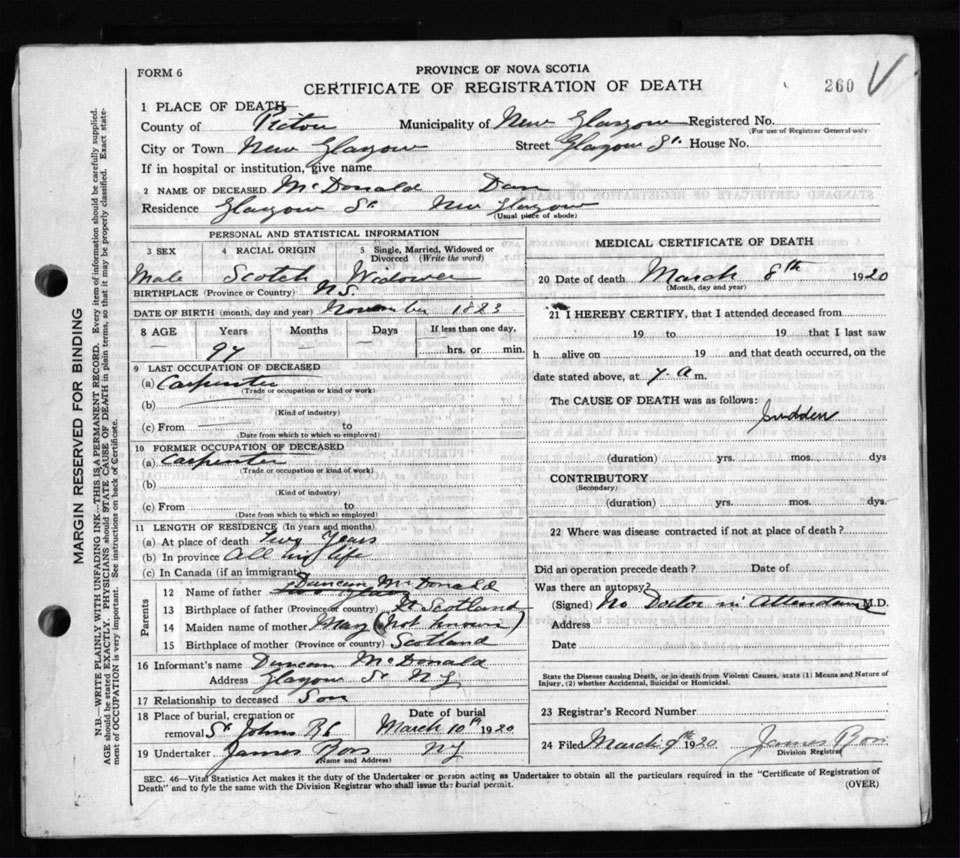 FORM 6
PROVINCE OF NOVA SCOTIA
CERTIFICATE OF REGISTRATION OF DEATH
260 V
1 PLACE OF DEATH
County of Pictou Municipality of New Glasgow Registered No.
(For use of Registrar General only)
City or Town New Glasgow Street Glasgow St. House No.
If in hospital or institution, give name
2 NAME OF DECEASED McDonald Dan
Residence Glasgow St New Glasgow
(Usual place of abode)
PERSONAL AND STATISTICAL INFORMATION
3 SEX 4 RACIAL ORIGIN 5 Single, Married, Widowed or Divorced (Write the word)
Male Scotch Widower
BIRTHPLACE (Province or Country) N.S.
DATE OF BIRTH (month, day and year) November 1823
8 AGE Years Months Days If less than one day,
97 hrs. or min.
9 LAST OCCUPATION OF DECEASED
(a) Carpenter
(Trade or occupation or kind of work)
(b)
(Kind of industry)
(c) From to
(Date from which to which so employed)
10 FORMER OCCUPATION OF DECEASED
(a) Carpenter
(Trade or occupation or kind of work)
(b)
(Kind of industry)
(c) From to
(Date from which to which so employed)
11 LENGTH OF RESIDENCE (In years and months)
(a) At place of death two Years
(b) In province All his life
(c) In Canada (if an immigrant)
Parents
12 Name of father Duncan McDonald
13 Birthplace of father (Province or country) Scotland
14 Maiden name of mother Mary (Not known)
15 Birthplace of mother (Province or country) Scotland
16 Informant's name Duncan McDonald
Address Glasgow St N G
17 Relationship to deceased Son
18 Place of burial, cremation or removal St Johns Date of burial March 10th 1920
19 Undertaker James N G
(Name and Address)
MEDICAL CERTIFICATE OF DEATH
20 Date of death March 8th 1920
(Month, day and year)
21 I HEREBY CERTIFY, that I attended deceased from
19 to 19 that I last saw
h alive on 19 and that death occurred, on the
date stated above, at 7. A m.
The CAUSE OF DEATH was as follows:
Sudden
(duration) yrs. mos. dys
CONTRIBUTORY
(Secondary)
(duration) yrs. mos. dys.
22 Where was disease contracted if not at place of death?
Did an operation precede death? Date of
Was there an autopsy?
(Signed) No Doctor in Attendance M.D.
Address
Date
State the Disease causing Death, or in death from Violent Causes, state (1) Means and Nature of
Injury, (2) whether Accidental, Suicidal or Homicidal.
23 Registrar's Record Number
24 Filed March 9th 1920 James
Division Registrar
SEC. 46—Vital Statistics Act makes it the duty of the Undertaker or person acting as Undertaker to obtain all the particulars required in the "Certificate of Registration of
Death" and to fyle the same with the Division Registrar who shall issue the burial permit.
(OVER)
MARGIN RESERVED FOR BINDING
N.B.—WRITE PLAINLY WITH UNFADING INK—THIS IS A PERMANENT RECORD. Every item of information should be carefully supplied.
AGE should be stated EXACTLY. PHYSICIANS should STATE CAUSE OF DEATH in plain terms, so that it may be properly classified. Exact state-
ment of OCCUPATION is very important. See instructions on back of Certificate.